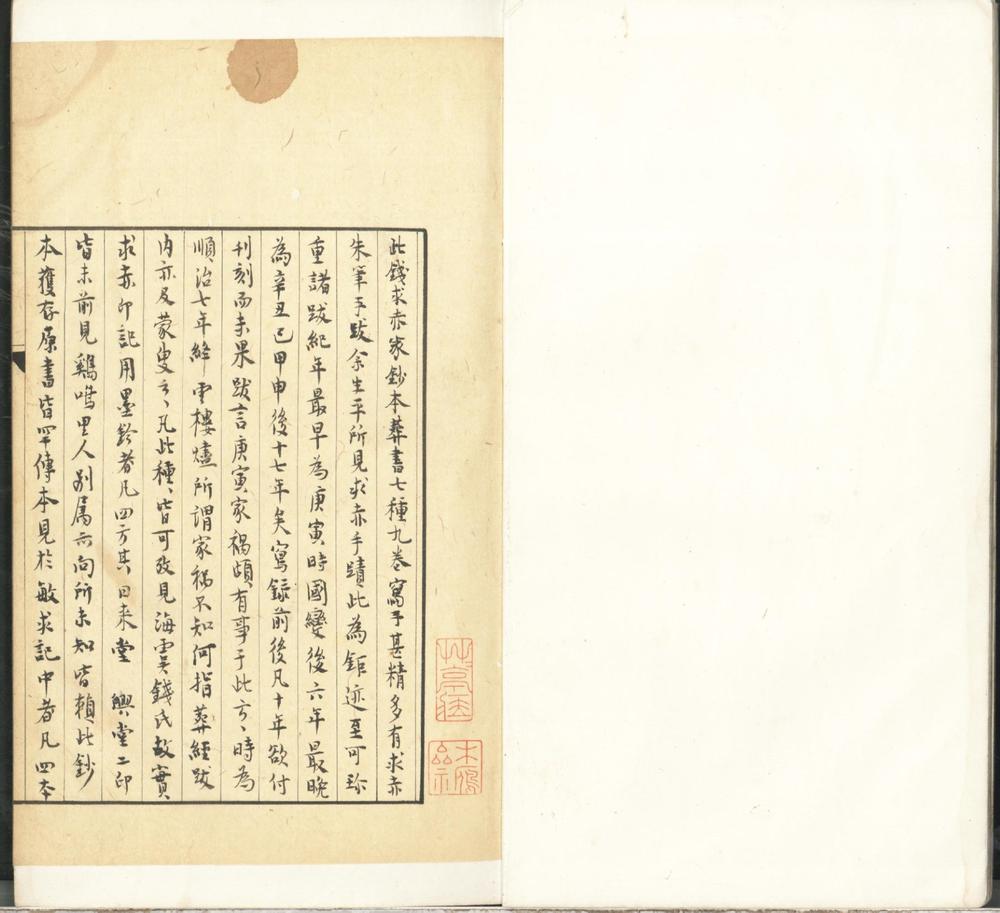 此錢求赤家鈔本葬書七種九卷寫手甚精多有求赤
朱筆手跋余生平所見求赤手蹟此為鉅迹至可珍
重諸跋紀年最早為庚寅時國變後六年最晚
為辛丑已甲申後十七年矣寫錄前後凡十年欲付
刊刻而未果跋言庚寅家禍頗有事于此云〻時為
順治七年絳雲樓燼所謂家禍不知何指葬經跋
内亦及蒙叟云〻凡此種〻皆可攷見海虞錢氏故實
求赤印記用墨鈐者凡四方其曰来堂 興堂二印
皆未前見鷄鳴里人別屬亦向所未知皆賴此鈔
本獲存原書皆罕傳本見於敏求記中者凡四本